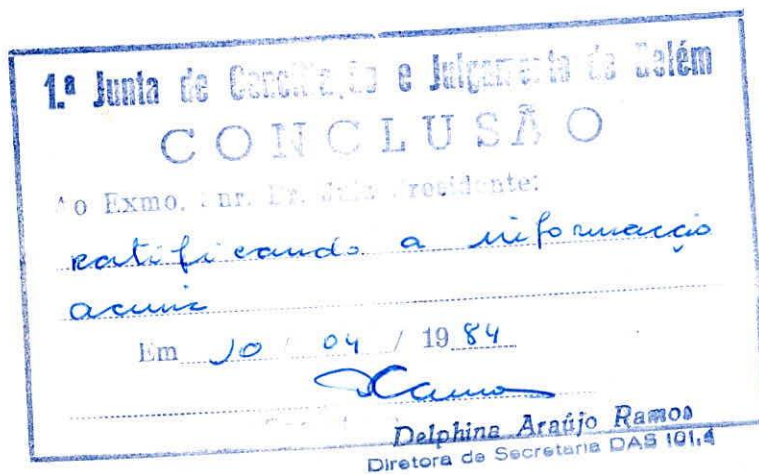 1.ª Junta de Conciliação e Julgamento de Belém
CONCLUSÃO
Ao Exmo. Snr. Dr. Juiz Presidente:
ratificando a informação
acima
Em 10 / 04 / 1984
Delphina Araújo Ramos
Diretora de Secretaria DAS 101,4